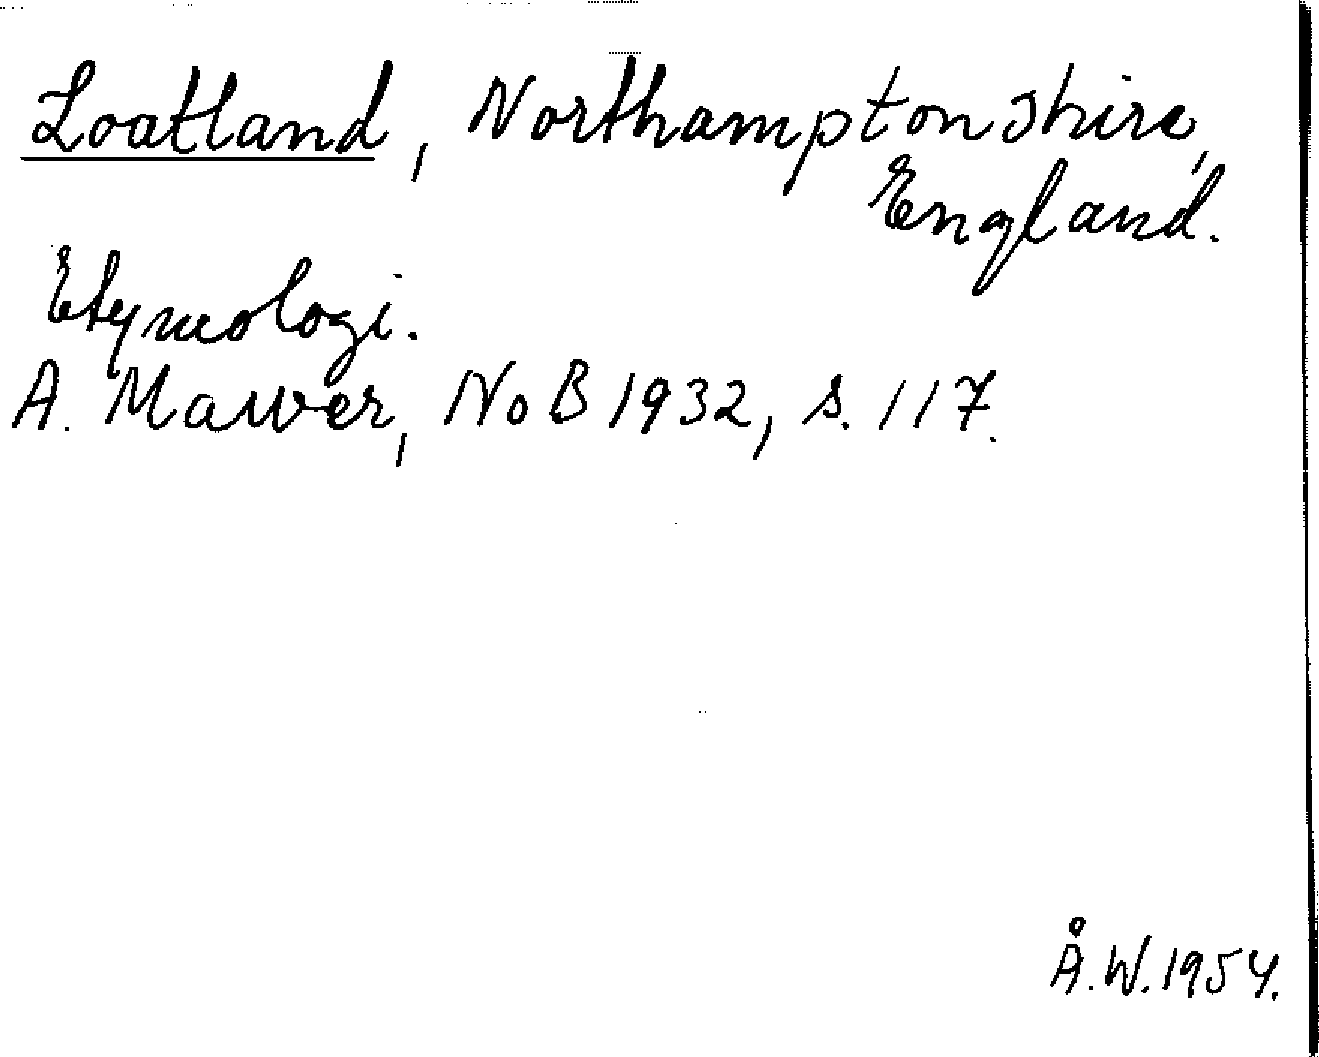 Loatland, Northamptonshire,
England.
Etymologi.
A. Mawer, NoB 1932, s. 117.
Å.W. 1954.